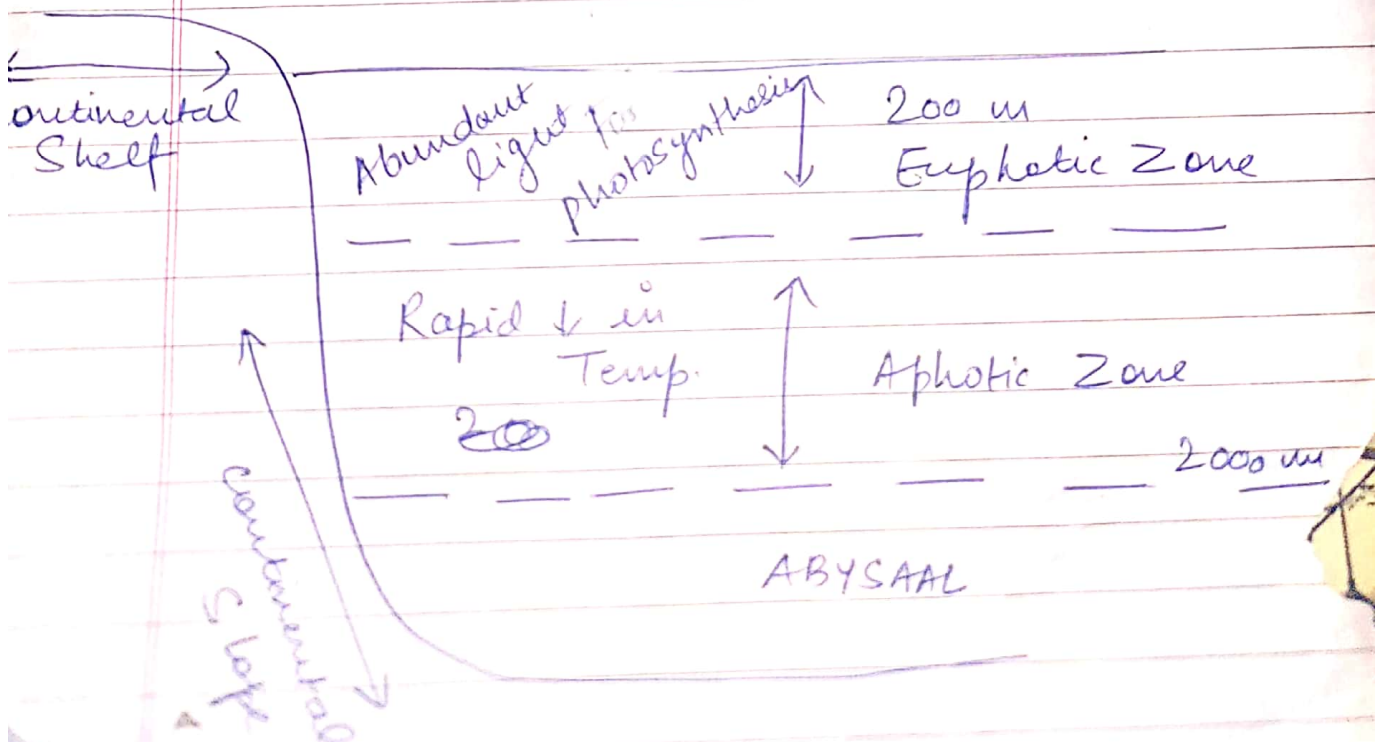 ontinental
Shelf
Abundant
light for
photosynthesis
200 m
Euphotic Zone
Rapid ↓ in
Temp.
Aphotic Zone
2000 m
ABYSAAL
Continental
Slope